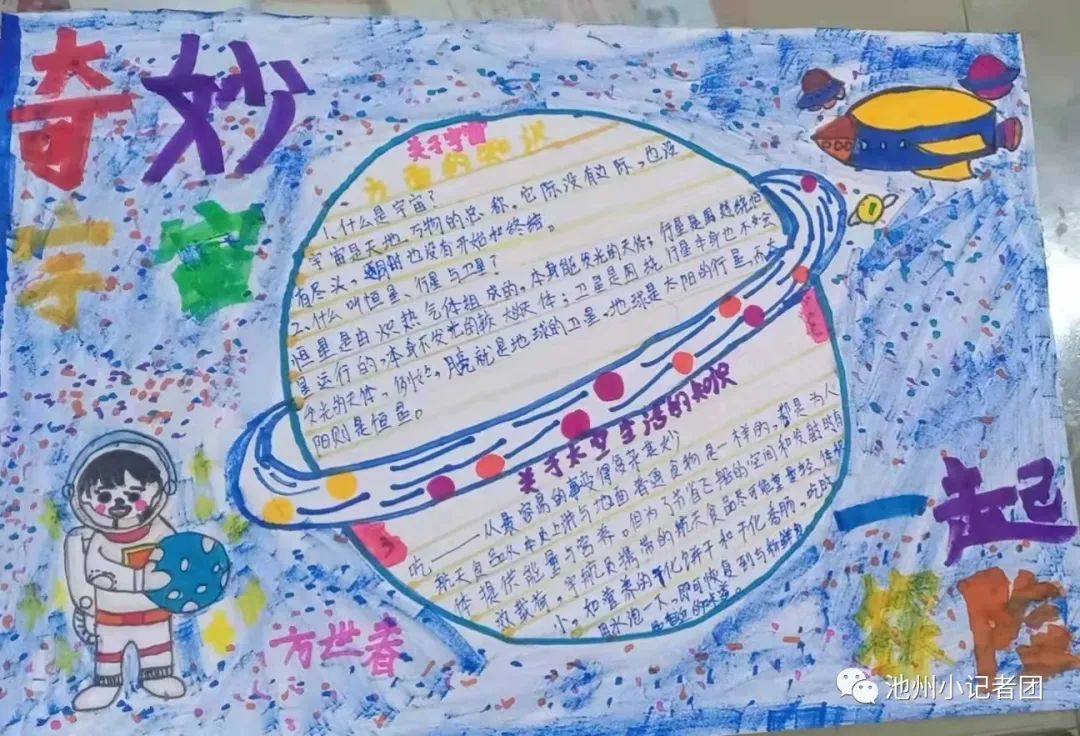 奇妙
宇宫
关于宇宙
方面的知识
1、什么是宇宙?
宇宙是天地万物的总称。它际没有边际,也没
有尽头,时也没有开始和终结。
2、什么叫恒星、行星与卫星?
恒星是由炽热气体组成的,本身能发光的天体;行星是围绕恒
星运行的,本身不发光的天体;卫星是围绕行星本身也不会
发光的天体,例,就是地球的卫星。地球是太阳的行星,太
阳则是恒星。
关于太空生活的知识
吃——从最容易的事变得复来
航天食品从本上讲与地面普通食物是一样的,都是为人
体提供能量与营养。但为了节省飞船的空间和发射时有
效载荷,宇航员携带的航天食品尽可能重量轻体积
小,如营养的化饼干和干化香肠,吃时
用水泡一下,即可恢复到与新鲜
一起
探险
方世春
池州小记者团